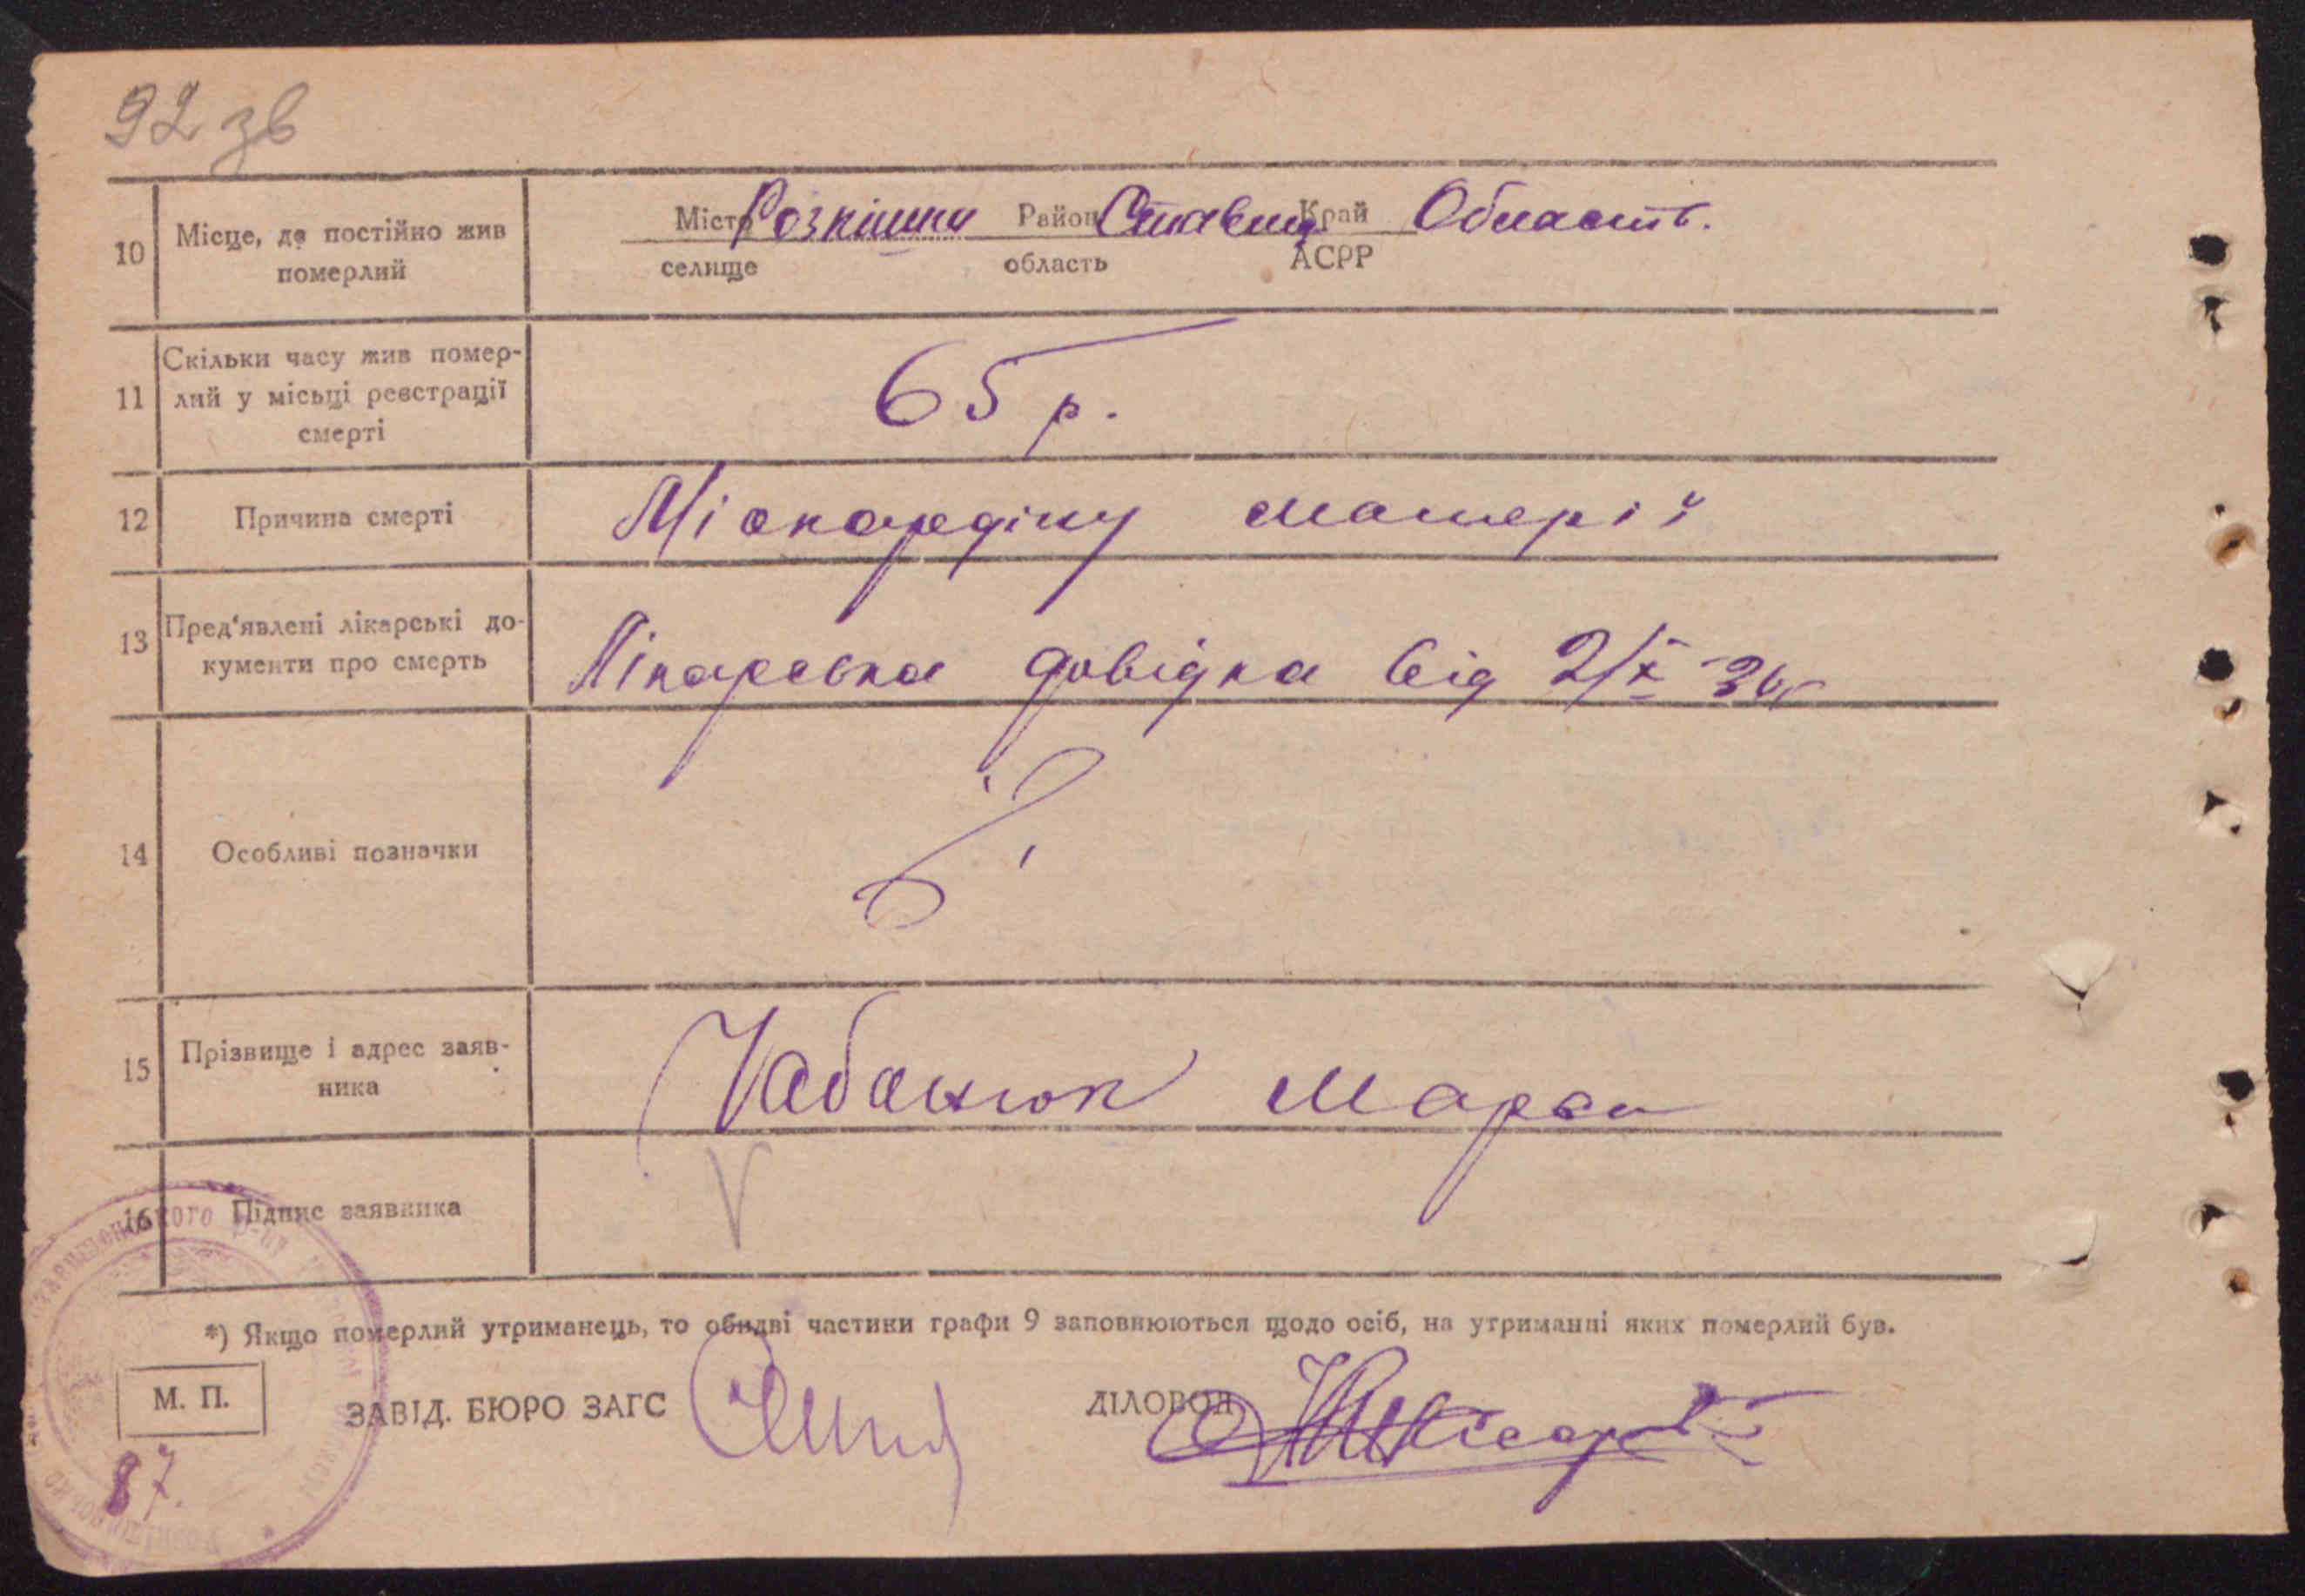 92 зв
10 Місце, де постійно жив померлий Місто Розкішна Район Ставищ Край Област.
селище область АСРР
11 Скільки часу жив помер-
лий у місьці реєстрації
смерті
65 р.
12 Причина смерті Міокардіну матерії
13 Пред‘явлені лікарські до-
кументи про смерть
Лікарська довідка від 2/X-36р
14 Особливі позначки
15 Прізвище і адрес заяв-
ника
Чабанюк Марва
16 Підпис заявника
V
*) Якщо померлий утриманець, то обидві частини графи 9 заповнюються щодо осіб, на утриманні яких померлий був.
М. П. ЗАВІД. БЮРО ЗАГС ДІЛОВОД
87.